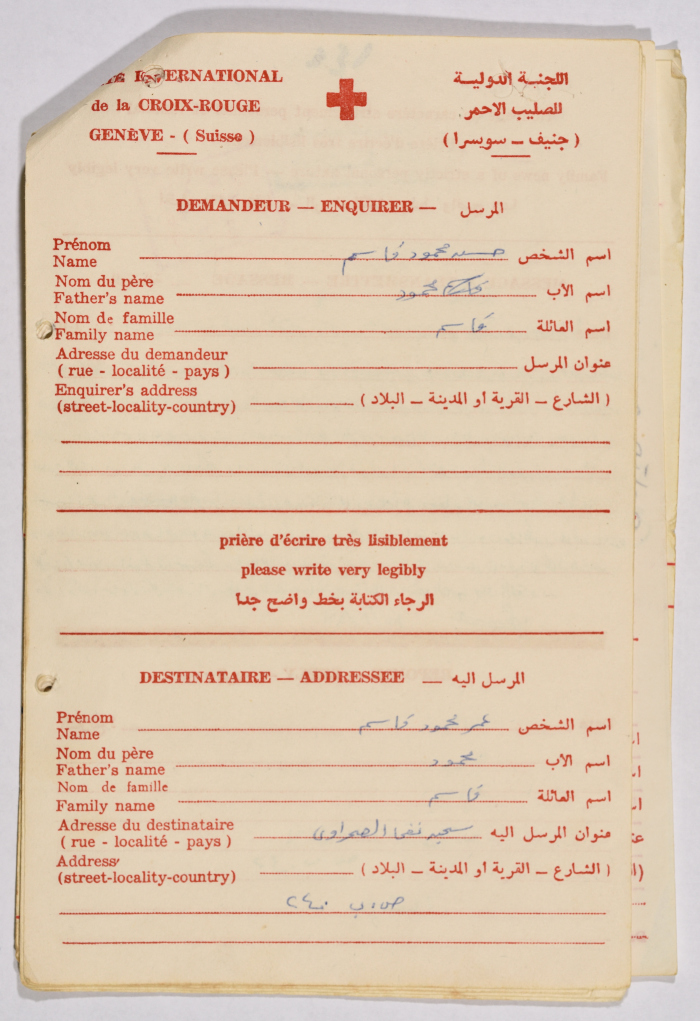 INTERNATIONAL
de la CROIX-ROUGE
GENÈVE - ( Suisse )
اللجنة الدولية
للصليب الاحمر
( جنيف ــ سويسرا )
DEMANDEUR — ENQUIRER — المرسل
Prénom
Name حسين محمود قاسم اسم الشخص
Nom du père
Father's name محمود اسم الأب
Nom de famille
Family name قاسم اسم العائلة
Adresse du demandeur
( rue - localité - pays ) عنوان المرسل
Enquirer's address
(street-locality-country) ( الشارع ــ القرية أو المدينة ــ البلاد )
prière d'écrire très lisiblement
please write very legibly
الرجاء الكتابة بخط واضح جدا
DESTINATAIRE — ADDRESSEE — المرسل اليه
Prénom
Name عمر محمود قاسم اسم الشخص
Nom du père
Father's name محمود اسم الأب
Nom de famille
Family name قاسم اسم العائلة
Adresse du destinataire
( rue - localité - pays ) الصحراوي عنوان المرسل اليه
Address
(street-locality-country) ( الشارع ــ القرية أو المدينة ــ البلاد )